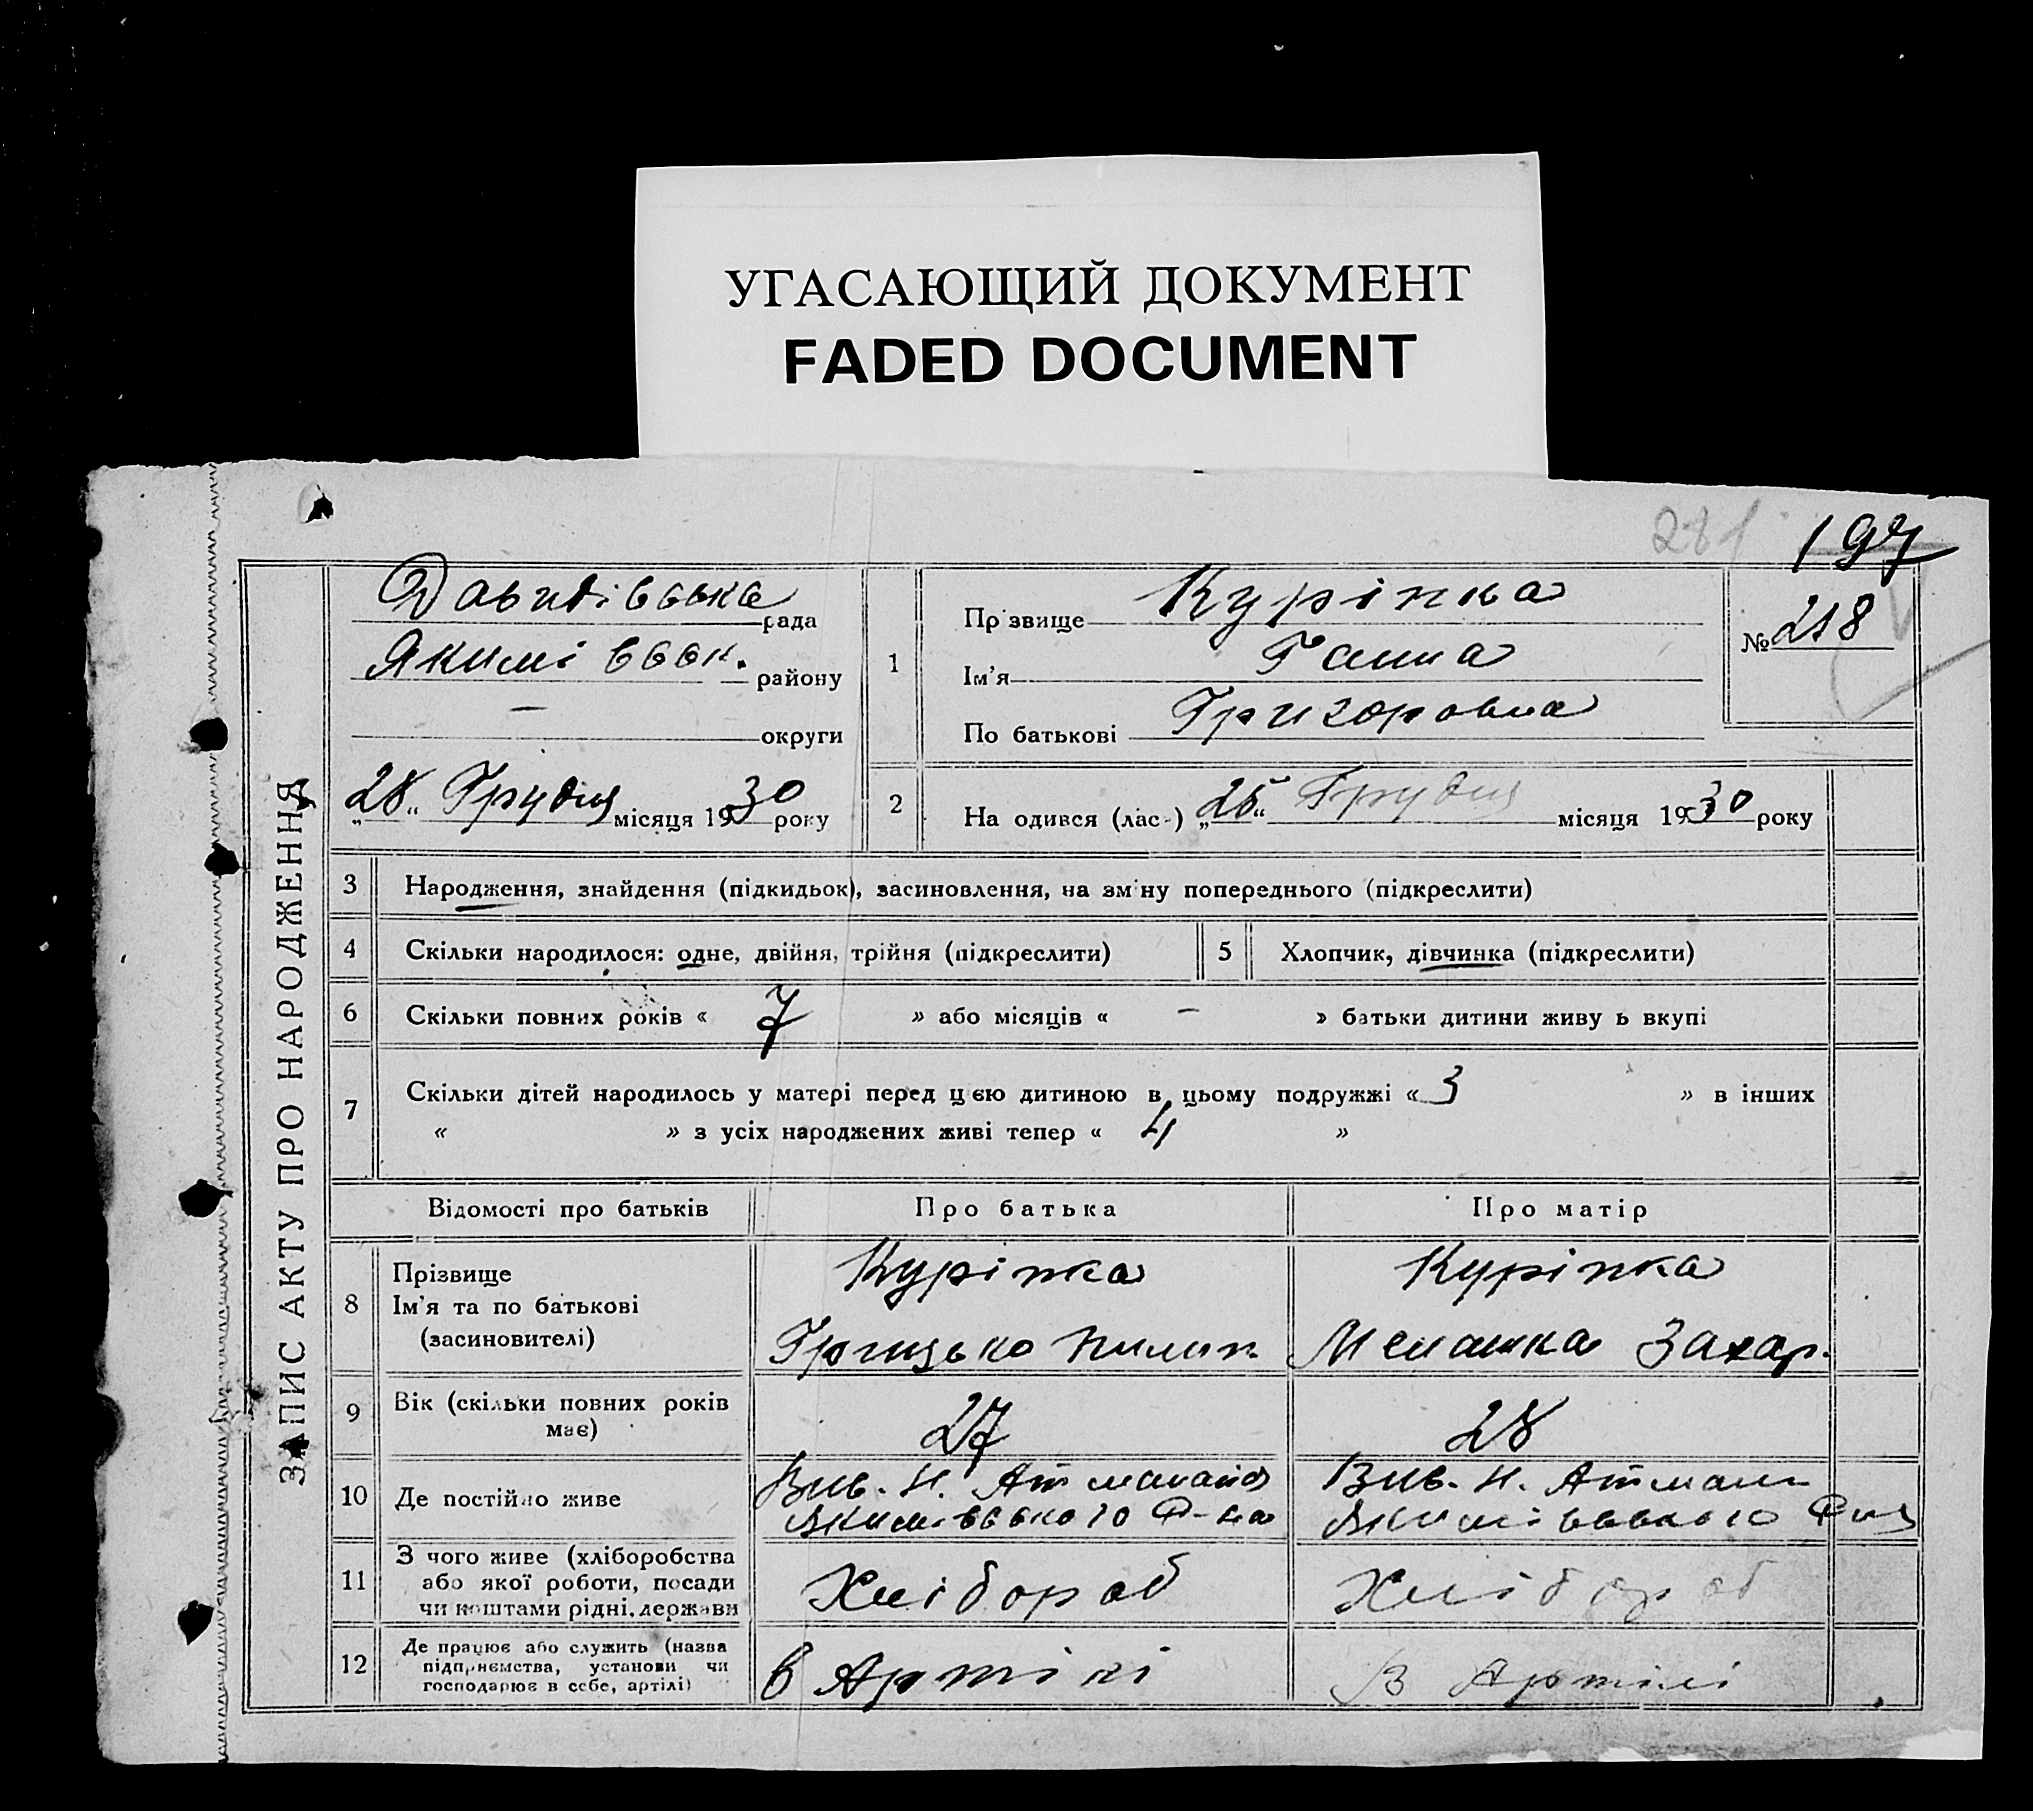 УГАСАЮЩИЙ ДОКУМЕНТ
FADED DOCUMENT
281 197
ЗАПИС АКТУ ПРО НАРОДЖЕННЯ
Давидівська рада
Якимівськ. району
— округи
„28“ Грудня місяця 1930 року
1
Прізвище Курінка
Ім'я Ганна
По батькові Григоровна
№ 218
2 На одився (лась) „25“ Грудня місяця 1930 року
3 Народження, знайдення (підкидьок), засиновлення, на зміну попереднього (підкреслити)
4 Скільки народилося: одне, двійня, трійня (підкреслити) 5 Хлопчик, дівчинка (підкреслити)
6 Скільки повних років « 7 » або місяців « — » батьки дитини живу ь вкупі
7 Скільки дітей народилось у матері перед цією дитиною в цьому подружжі « 3 » в інших
« » з усіх народжених живі тепер « 4 »
Відомості про батьків Про батька Про матір
8 Прізвище Курінка Курінка
Ім'я та по батькові
(засиновителі) Грицько Пилип Мелашка Захар.
9 Вік (скільки повних років
має) 27 28
10 Де постійно живе Вив. Н. Атманай Вив. Н. Атман
Якимівського Р-на Якимівського Р-на
11 З чого живе (хліборобства
або якої роботи, посади
чи коштами рідні, держави Хлібороб Хлібороб
12 Де працює або служить (назва
підприємства, установи чи
господарює в себе, артілі) в Артілі В Артілі